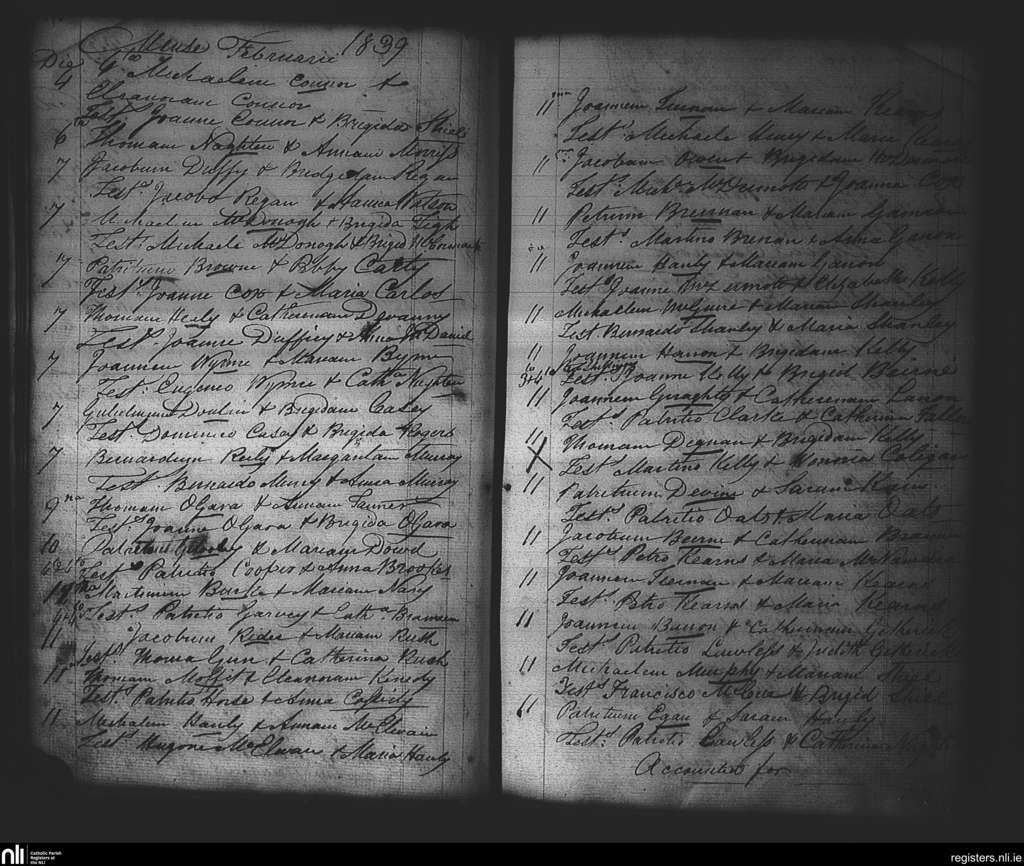 Mense Februarii 1839
Die
4 Michaelem Connor &
Eleanoram Connor
Test. Joanne Connor & Brigida Shiel
6 Thomam Naghten & Annam Morriss
7 Jacobum Duffy & Bridgedam Regan
Test. Jacobo Regan & Hanna Watson
7 Michaelem McDonogh & Brigida Tigh
Test. Michaele McDonogh & Brigid
7 Patritium Browne & Bbby Carty
Test. Joanne Cox & Maria Carlos
7 Thomam Healy & Catherinam Devanny
Test. Joanne Dufficy & Anna McDaniel
7 Joannem Wynne & Mariam Byrn
Test. Eugenio Wynne & Catha Nughten
7 Gulielmum Doulin & Brigidam Casey
Test. Dominico Casey & Brigida Rogers
7 Bernardum Reily & Margaritam Murray
Test. Bernardo Murry & Anna Murray
9 Thomam OGara & Annam Tanner
Test. Joanne OGara & Brigida OGara
10 Patritium & Mariam Dowd
Test Patritio Cooper & Anna Brookes
Martinum Burke & Mariam Nary
Test. Patritio Garvey & Catha Brannan
11 Jacobum Rider & Mariam Rush
Test. Thoma Gun & Catherina Rush
11 Thomam Moffit & Eleanoram Kenedy
Test. Patritio Horse & Anna
11 Michalem Hanly & Annam McElwain
Test. Hugone McElwain & Maria Hanly
11 Joannem & Mariam Kearns
Test. Michaele Murry & Maria
11 Jacobum Owens & Brigidam McDermott
Test. Michl McDermott & Joanna Cox
11 Petrum Brennan & Mariam
Test. Martino Brenan & Anna
11 Joannem Hanly & Mariam Lanon
Test. Joanne McDermott & Elizabeth Kelly
11 Michaelem McGuire & Mariam Shanley
Test. Bernardo Shanley & Maria Shanley
11 Joannem Hanon & Brigidam Kelly
Test. Joanne Kelly & Brigid Beirne
11 Joannem Geraghty & Catherinam Lanon
Test. Patritio Clarke & Catharina Fallon
11 Thomam Degnan & Brigidam Kelly
Test. Martino Kelly & Honoria Coligan
Patritium Devine & Saram
Test. Patritio Oats & Maria Oats
11 Jacobum Beirne & Catherinam
Test. Petro Kearns & Maria
11 Joannem & Mariam Kearns
Test. Petro Kearns & Maria Kearns
11 Joannem Banon & Catherinam
Test. Patritio Lawless & Judith
11 Michaelem Murphy & Mariam Shiel
Test. Francisco & Brigid Shiel
11 Patritium Egan & Saram Hanly
Test. Patritio Lawless & Catherina
Accounted for
nli Catholic Parish
Registers at
the NLI
registers.nli.ie